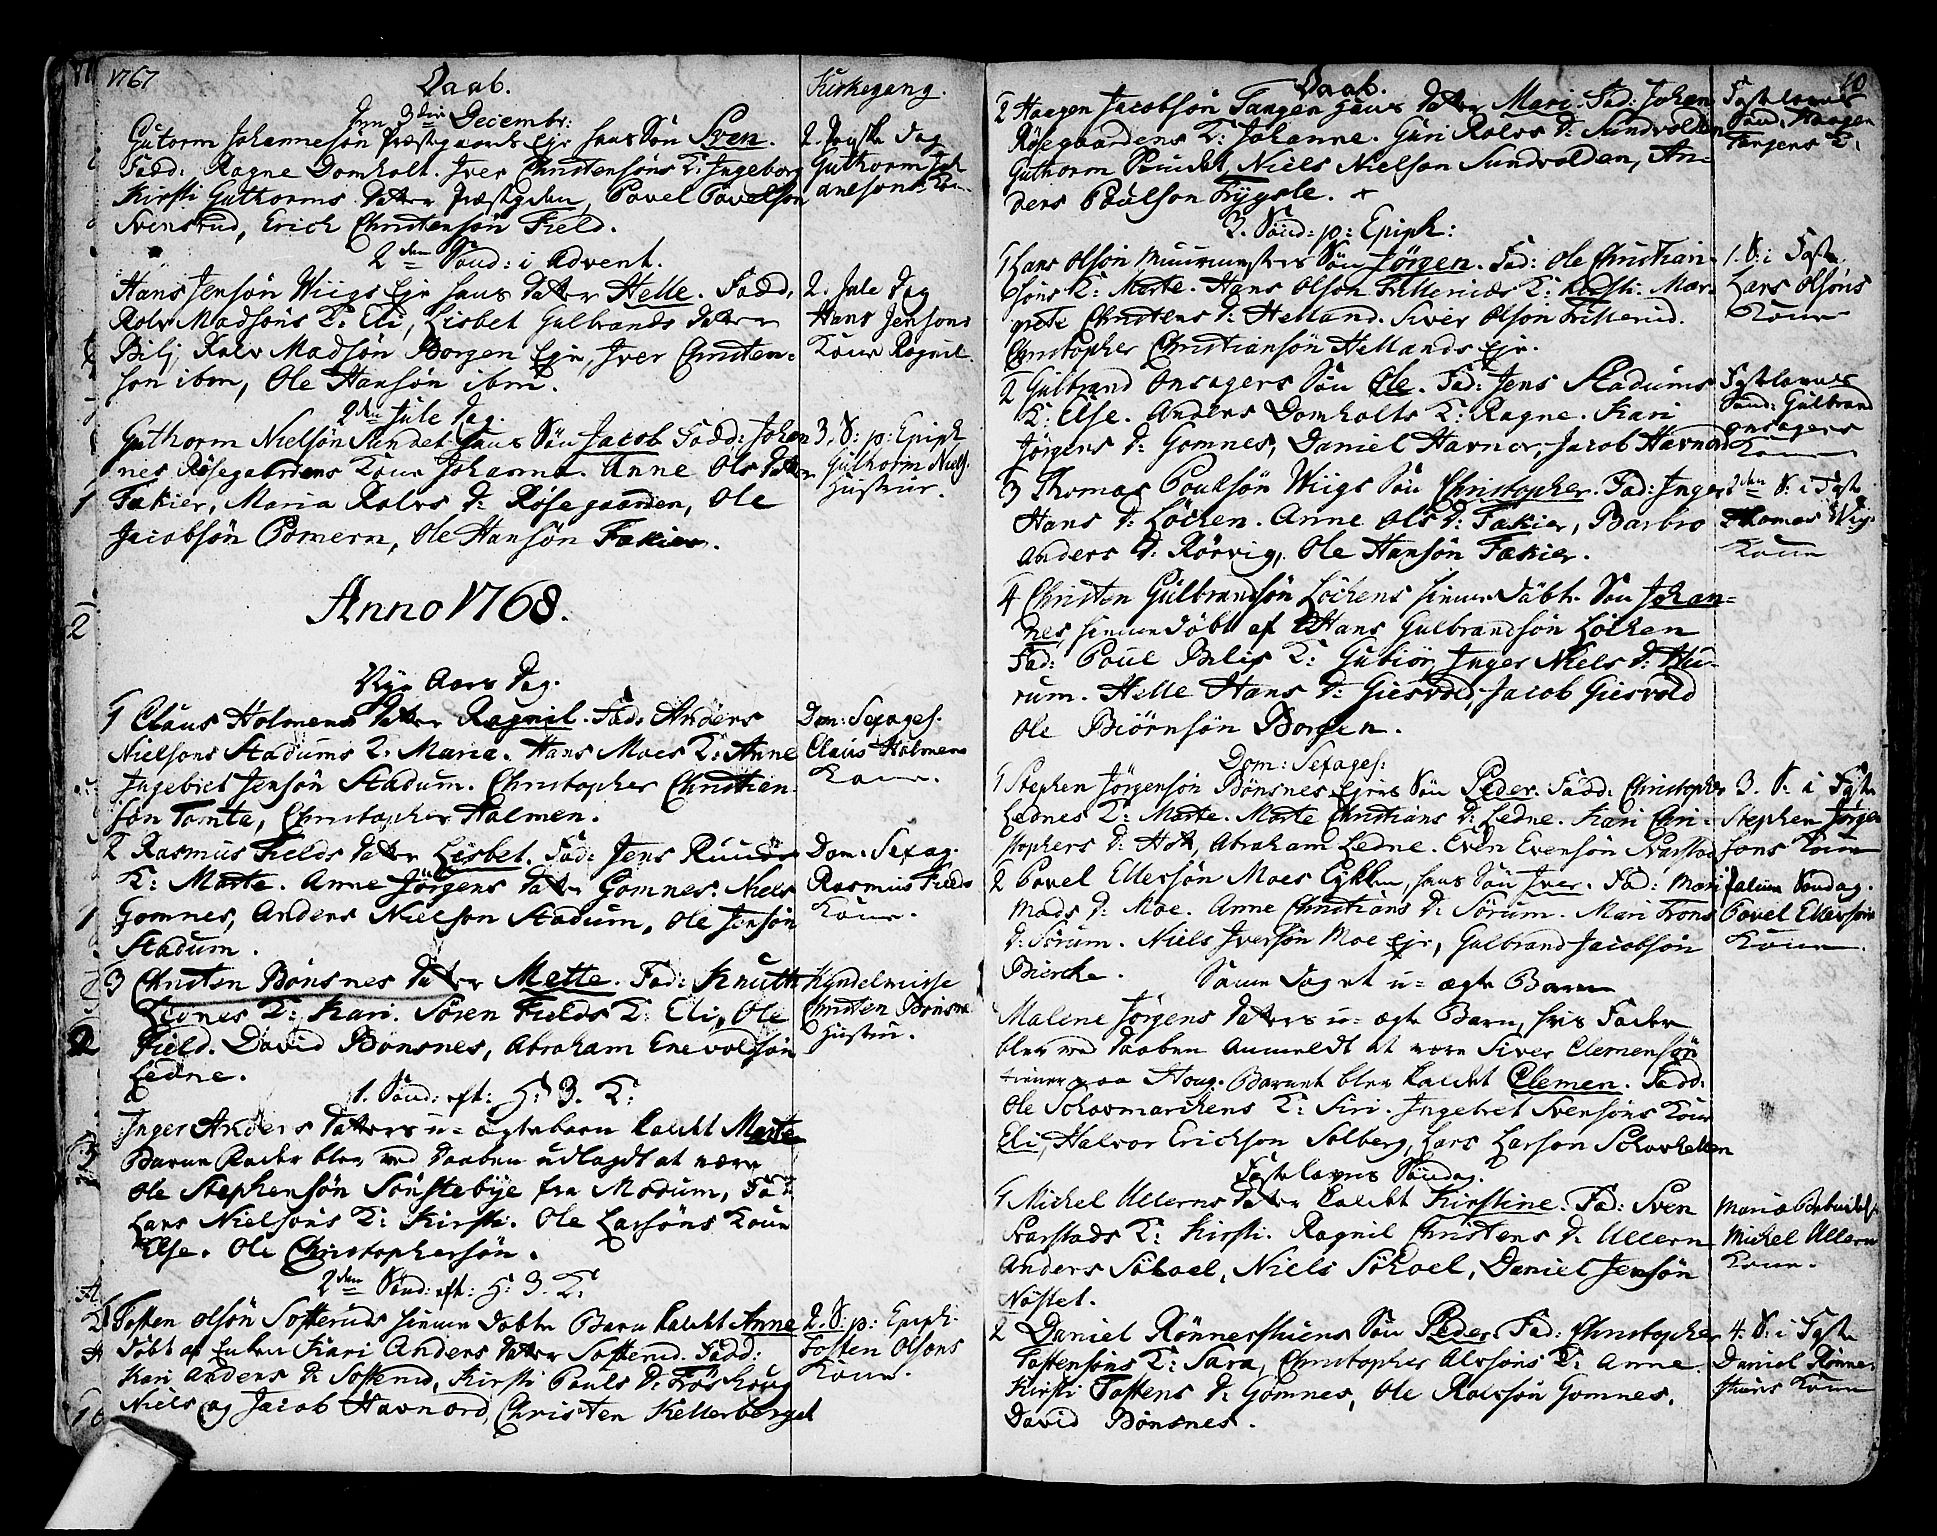 1767
Daab.
Kirkegang.
Den 3die Decembr:
Gutorm Johannesøn Præstgaards Eje hans Søn Sven.
Fadd: Ragne Domholt. Iver Christensøns K: Ingeborg
Kirsti Guthorms Datter Præstgden, Povel Povelsøn
Svensrud, Erich Christensøn Field.
Guthorm Joh
ansons Kone
2den Sønd: i Advent.
Hans Jensøn Wiigs Eje hans Datter Helle. Fadd.
Rolv Madsøns K: Eli, Lisbet Gulbrands Datter
Bili, Rolv Madsøn Borgen Eje, Iver Christen-
søn ibm, Ole Hansøn ibm.
2. Jule Dag
Hans Jensøns
Kone Ragnil.
2den Jule Dag.
Guthorm Nielsøn Sundet hans Søn Jacob Fadd: Johan
nes Røsegaardens Kone Johanna. Anne Ols Datter
Fækier, Maria Rolvs D: Røsegaarden, Ole
Jacobsøn Pomern, Ole Hansøn Fækier.
3. S: p: Epiph
Guthorm Niels.
Hustrue.
Anno 1768.
Nye Aars Dag.
1 Claus Holmens Datter Ragnil. Fad: Anders
Nielsøns Stadums K: Maria. Hans Moes K: Anne
Ingebret Jensøn Stadum. Christopher Christen
søn Tomta, Christopher Halmen.
Dom: Sexages.
Claus Holmens
Kone.
2 Rasmus Fields Datter Lisbet. Fad: Jens Ruuds
K: Marte. Anne Jørgens Datter Gomnes. Niels
Gomnes, Anders Nielsøn Stadum, Ole Jensøn
Stadum.
Dom: Sexag.
Rasmus Fields
Kone.
3 Christen Bønsnes Datter Mette. Fad: Knuth
Lednes K: Kari. Søren Fields K: Eli, Ole
Field. David Bønsnes, Abraham Enevoldsøn
Ledne.
Kyndelmisse
Christen Bønsne
Hustru.
1. Sønd: eft: H: 3. K:
Inger Anders Datters u-ægtebarn kaldet Marte
Barne Fader blev ved Daaben udlagdt at være
Ole Stephensøn Sønstebye fra Modum, Fad:
Lars Nielsøns K: Kirsti. Ole Larsøns Kone
Else. Ole Christophersøn.
2den Sønd: eft: H: 3. K:
Tosten Olsøn Sotteruds hiemme Døbte Barn kaldet Anne
Døbt af Enken Kari Anders Datter Sotterud. Fadd:
Kari Anders D: Sotterud, Kirsti Pauls D: Frøshoug
Niels og Jacob Havnord, Christen Kellerberget
2. S: p: Epiph:
Tosten Olsøns
Kone.
10
Daab.
2 Haagen Jacobsøn Tangen hans Datter Mari. Fad: Johan
Røsegaardens K: Johanne. Guri Rolvs D: Sundvolden
Guthorm Sundet, Niels Nielsøn Sundvolden, An-
ders Poulsøn Frygsle.
Fastelavns
Sønd: Haagen
Tangens K:
3. Sønd: p: Epiph:
1 Lars Olsøn Muurmesters Søn Jørgen. Fad: Ole Christian-
søns K: Marte. Hans Olsøn Fitterniæs K: Kirsti. Mar-
grete Christens D: Helland. Siver Olsøn Fitterud.
Christopher Christiansøn Hellands Eje.
1. S: i Faste
Lars Olsøns
Kone
2 Gulbrand Onsagers Søn Ole. Fad: Jens Stadums
K: Else. Anders Domholts K: Ragne. Kari
Jørgens D: Gomnes, Daniel Havnor, Jacob Havnord
Fastelavns
Sønd: Gulbrand
Onsagers
Kone
3 Thomas Poulsøn Wiigs Søn Christopher. Fad: Inger
Hans D: Løchen. Anne Ols D: Fækier, Barbro
Anders D: Rørvig, Ole Hansøn Fækier.
2den S: i Faste
Thomas Wigs
Kone
4 Christen Gulbrandsøn Løchens hiemme Døbte Søn Johan-
nes, hiemmedøbt af Hans Gulbrandsøn Løchen
Fad: Poul Bilis K: Gubiør, Inger Niels D: Hu-
rum. Helle Hans D: Giesvold, Jacob Giesvold
Ole Biørnsøn Borgen.
Dom: Sexages:
1 Stephen Jørgensøn Bønsnes Ejes Søn Peder. Fadd: Christopher
Lednes K: Marte. Marte Christians D: Ledne. Kari Chri-
stophers D: , Abraham Ledne. Even Evensøn Svarstad
3. S: i Faste
Stephen Jørgen
søns Kone
2 Povel Ellersøn Moes Eje, hans Søn Iver. Fad: Mari
Mads D: Moe. Anne Christians D: Sørum. Mari Frons
D: Sørum. Niels Iversøn Moe Eje, Gulbrand Jacobsøn
Bierche.
Palme Søndag.
Povel Ellersøns
Kone
Samme Dag et u-ægte Barn
Malene Jørgens Datters u-ægte Barn, hvis Fader
blev ved Daaben anmeldt at være Siver Clemensøn
tiener paa Houg. Barnet blev kaldet Clemen. Fadd:
Ole Schovmarchens K: Siri. Ingebret Svensøns Kone
Eli, Halvor Erichsøn Solberg, Lars Larsøn Schovhellen
Fastelavns Søndag.
1 Michel Ullerns Datter kaldet Kirstine. Fad: Sven
Svarstads K: Kirsti. Ragnil Christens D: Ullern
Anders Søhoel, Niels Søhoel, Daniel Jensøn
Nøstet.
Mariæ Bebudelse
Michel Ullerns
Kone.
2 Daniel Rønnerthiens Søn Peder. Fad: Christopher
Tostensøns K: Sara, Christopher Alvsøns K: Anne
Kirsti Tostens D: Gomnes, Ole Rolvsøn Gomnes.
David Bønsnes.
4. S: i Faste
Daniel Rønner-
thiens Kone